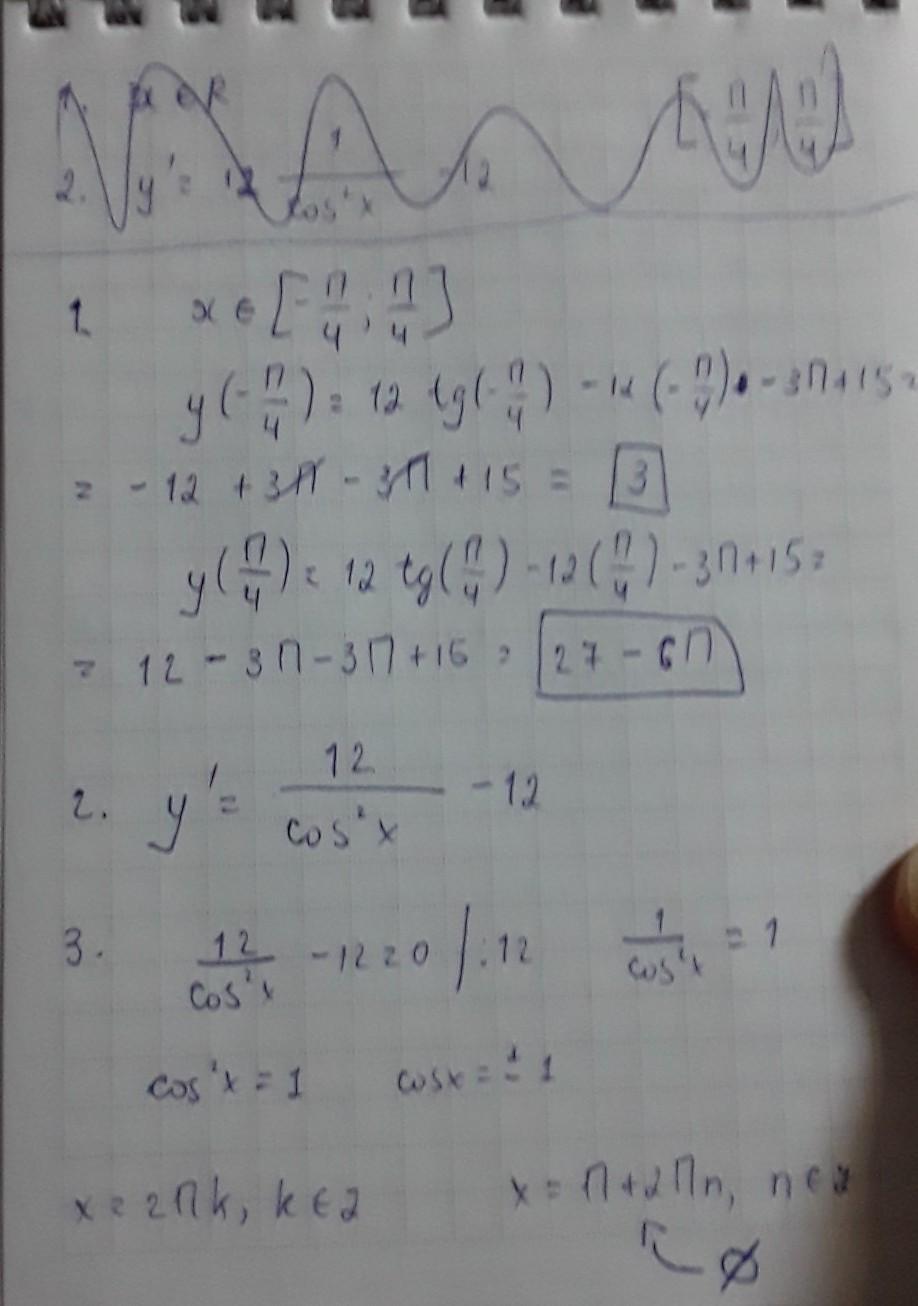 1. x ∈ R [-π/4; π/4]
2. y' = 12 1/cos²x - 12
1. x ∈ [-π/4; π/4]
y(-π/4) = 12 tg(-π/4) - 12(-π/4) - 3π + 15 =
= -12 + 3π - 3π + 15 = 3
y(π/4) = 12 tg(π/4) - 12(π/4) - 3π + 15 =
= 12 - 3π - 3π + 15 = 27 - 6π
2. y' = 12/cos²x - 12
3. 12/cos²x - 12 = 0 /:12 1/cos²x = 1
cos²x = 1 cosx = ±1
x = 2πk, k ∈ Z x = π + 2πn, n ∈ Z
∅